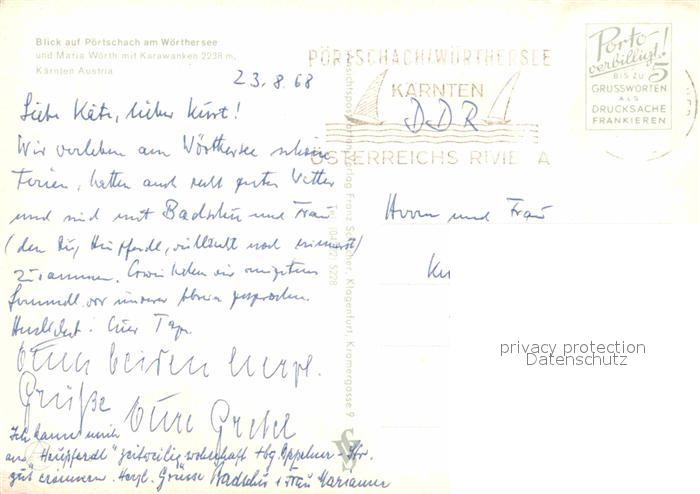 Blick auf Pörtschach am Wörthersee
und Maria Wörth mit Karawanken 2238 m,
Kärnten Austria
23.8.68
PÖRTSCHACH/WÖRTHERSEE
KÄRNTEN
ÖSTERREICHS RIVIE A
DDR
Porto-
verbilligt!
BIS ZU 5
GRUSSWORTEN
ALS
DRUCKSACHE
FRANKIEREN
Liebe Käte, lieber Kurt!
Wir verleben am Wörthersee schöne
Ferien, hatten auch recht gutes Wetter
und sind mit Badschu und Frau
(den Du, Heupferdl, vielleicht noch erinnerst)
zusammen.
vor unserer Abreise gesprochen.
Euer
Euch beiden herzl.
Grüße Eure Gretel
Ich kann mich
an "Heupferdl" zeitweilig wohnhaft Hbg. Str.
gut erinnern. Herzl. Grüsse Badschu + Frau Marianne
Herrn und Frau
Ku
Franz Schilcher, Klagenfurt, Kramergasse 9
privacy protection
Datenschutz